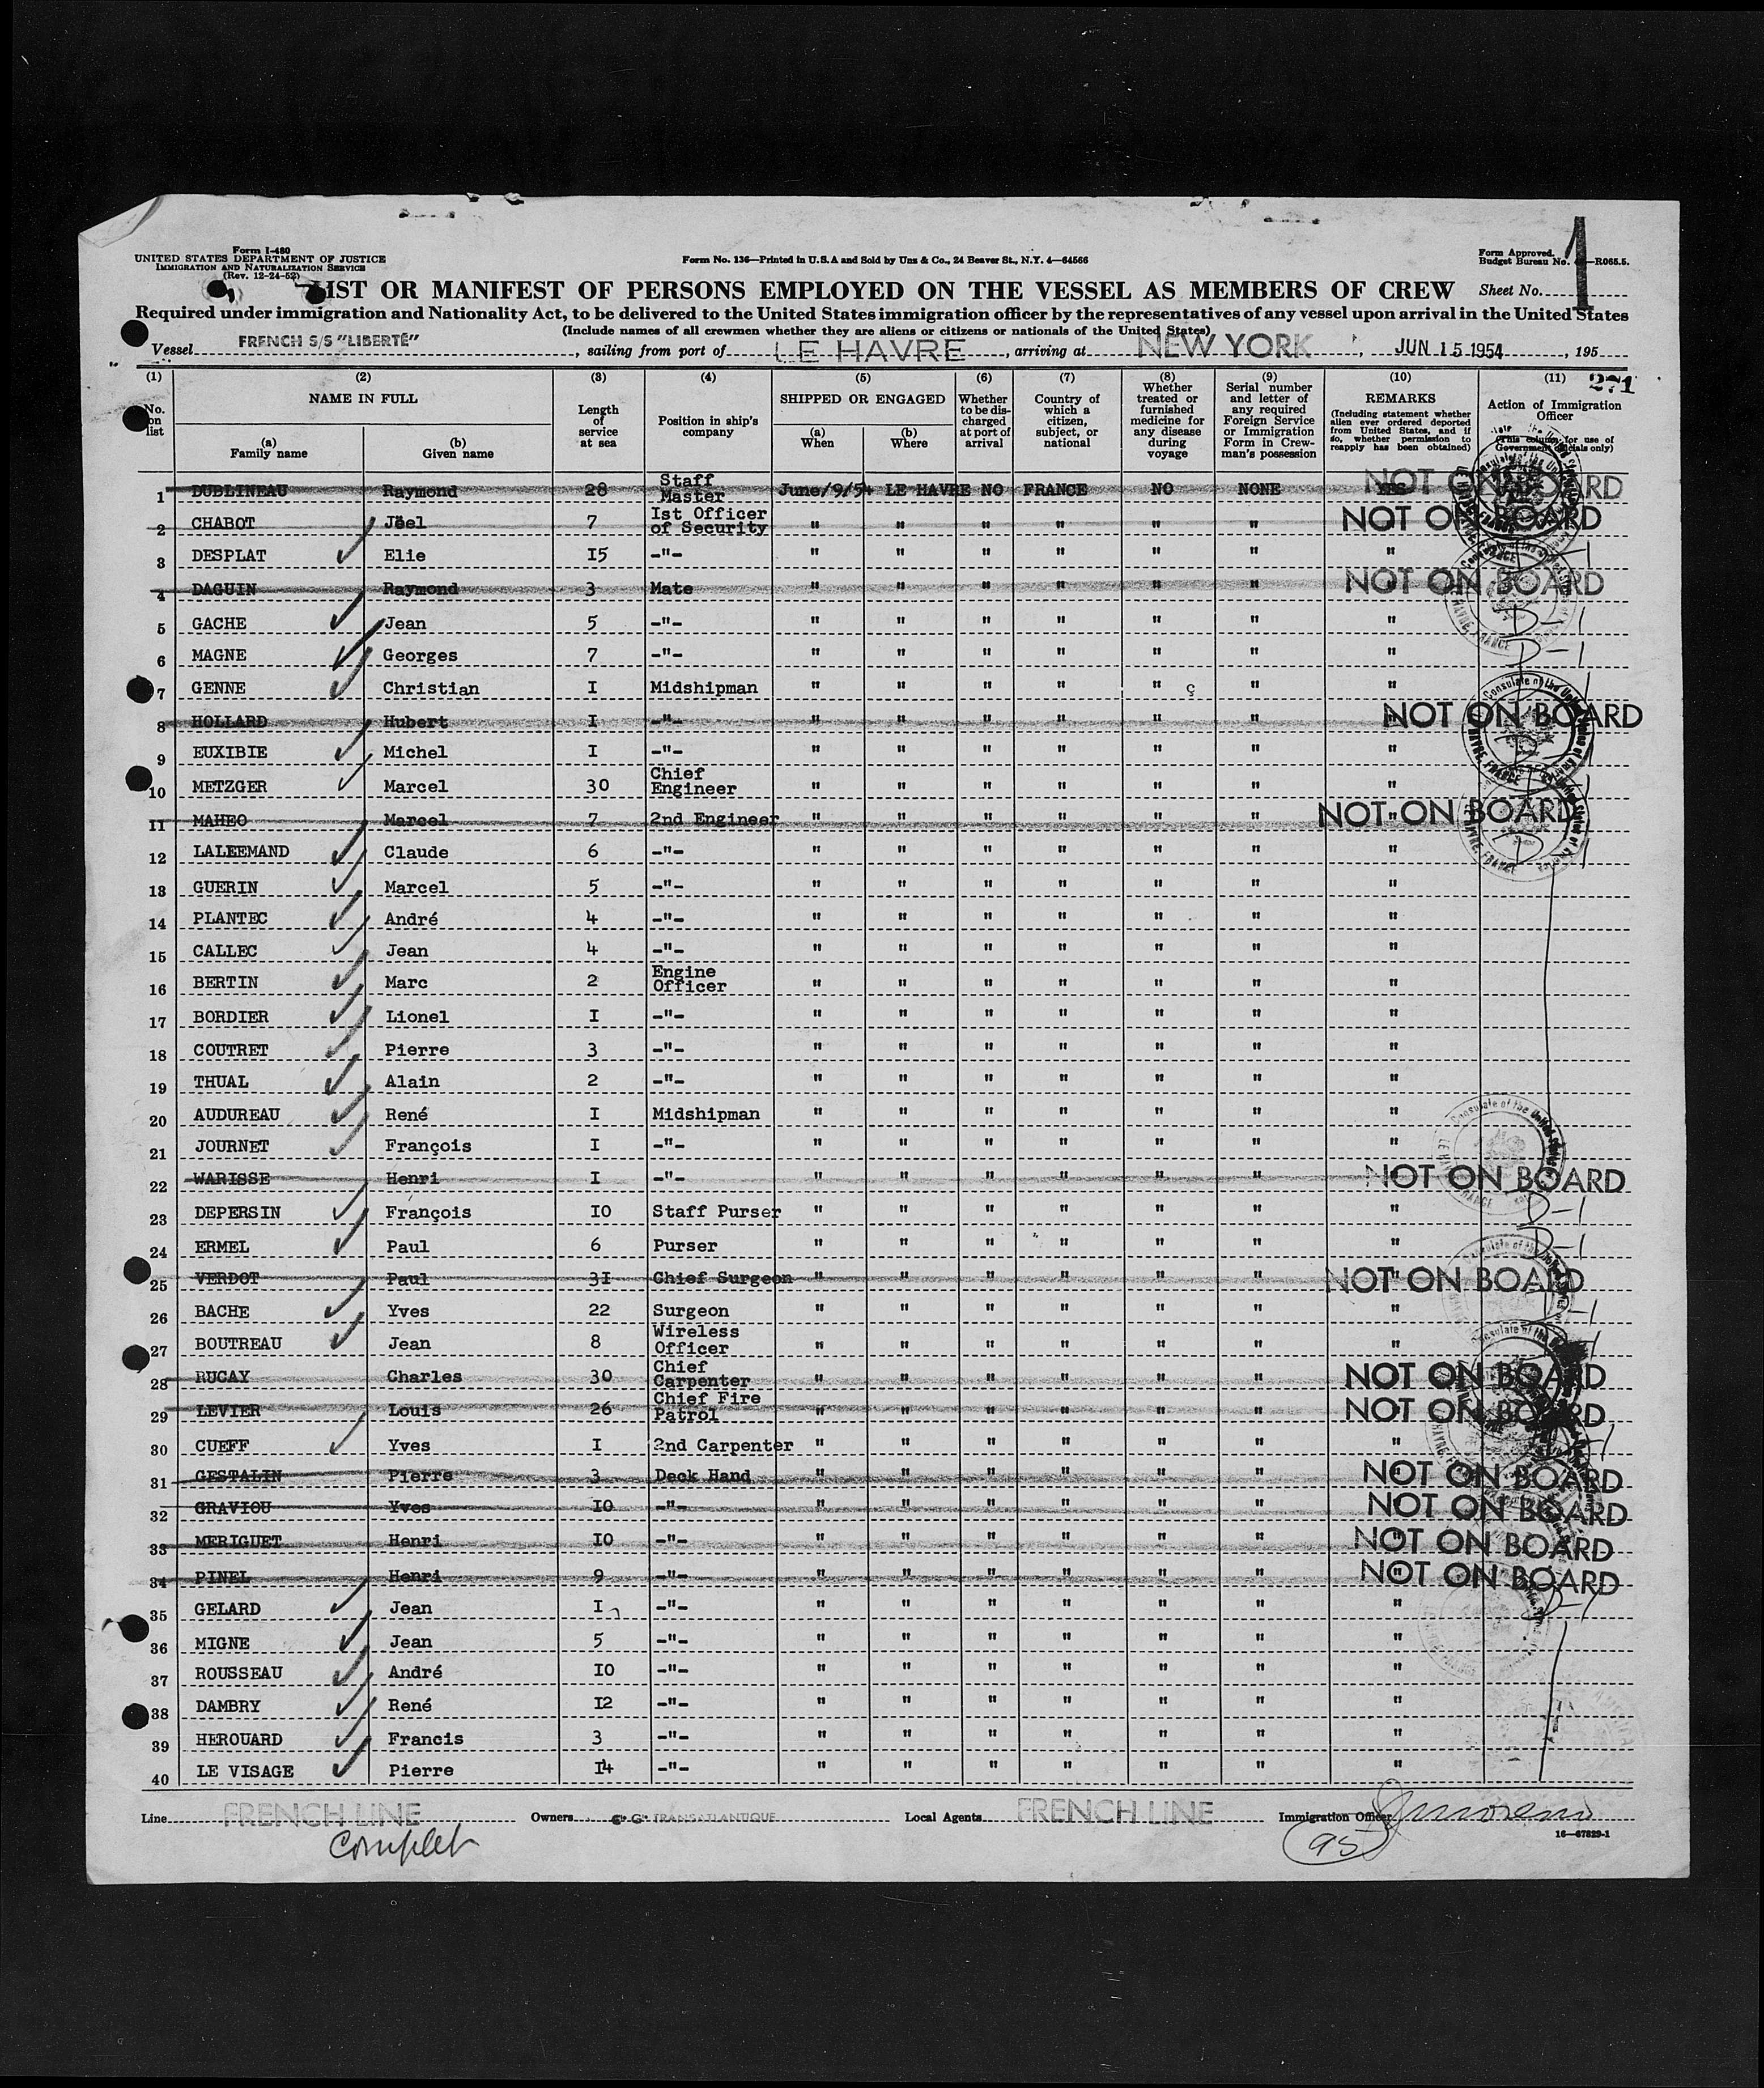 Form I-480
UNITED STATES DEPARTMENT OF JUSTICE
IMMIGRATION AND NATURALIZATION SERVICE
(Rev. 12-24-52)
Form No. 136—Printed in U.S.A and Sold by Unz & Co., 24 Beaver St., N.Y. 4—64566
Form Approved.
Budget Bureau No. —R065.5.
LIST OR MANIFEST OF PERSONS EMPLOYED ON THE VESSEL AS MEMBERS OF CREW Sheet No. 1
Required under immigration and Nationality Act, to be delivered to the United States immigration officer by the representatives of any vessel upon arrival in the United States
(Include names of all crewmen whether they are aliens or citizens or nationals of the United States)
Vessel FRENCH S/S "LIBERTÉ", sailing from port of LE HAVRE, arriving at NEW YORK, JUN 15 1954, 195
271
(1) No. on list
(2) NAME IN FULL
(a) Family name
(b) Given name
(3) Length of service at sea
(4) Position in ship's company
(5) SHIPPED OR ENGAGED
(a) When
(b) Where
(6) Whether to be discharged at port of arrival
(7) Country of which a citizen, subject, or national
(8) Whether treated or furnished medicine for any disease during voyage
(9) Serial number and letter of any required Foreign Service or Immigration Form in Crewman's possession
(10) REMARKS (Including statement whether alien ever ordered deported from United States, and if so, whether permission to reapply has been obtained)
(11) Action of Immigration Officer (This column for use of Government officials only)
1 DUBLINEAU Raymond 28 Staff Master June/9/54 LE HAVRE NO FRANCE NO NONE YES NOT ON BOARD
2 CHABOT Jöel 7 Ist Officer of Security " " " " " " " NOT ON BOARD
3 DESPLAT Elie 15 -"- " " " " " " "
4 DAGUIN Raymond 3 Mate " " " " " " " NOT ON BOARD
5 GACHE Jean 5 -"- " " " " " " " D-1
6 MAGNE Georges 7 -"- " " " " " " " D-1
7 GENNE Christian I Midshipman " " " " " " "
8 HOLLARD Hubert I -"- " " " " " " " NOT ON BOARD
9 EUXIBIE Michel I -"- " " " " " " "
10 METZGER Marcel 30 Chief Engineer " " " " " " "
11 MAHEO Marcel 7 2nd Engineer " " " " " " " NOT ON BOARD
12 LALEEMAND Claude 6 -"- " " " " " " "
13 GUERIN Marcel 5 -"- " " " " " " "
14 PLANTEC André 4 -"- " " " " " " "
15 CALLEC Jean 4 -"- " " " " " " "
16 BERTIN Marc 2 Engine Officer " " " " " " "
17 BORDIER Lionel I -"- " " " " " " "
18 COUTRET Pierre 3 -"- " " " " " " "
19 THUAL Alain 2 -"- " " " " " " "
20 AUDUREAU René I Midshipman " " " " " " "
21 JOURNET François I -"- " " " " " " "
22 WARISSE Henri I -"- " " " " " " " NOT ON BOARD
23 DEPERSIN François 10 Staff Purser " " " " " " " D-1
24 ERMEL Paul 6 Purser " " " " " " " D-1
25 VERDOT Paul 31 Chief Surgeon " " " " " " " NOT ON BOARD
26 BACHE Yves 22 Surgeon " " " " " " "
27 BOUTREAU Jean 8 Wireless Officer " " " " " " "
28 RUCAY Charles 30 Chief Carpenter " " " " " " " NOT ON BOARD
29 LEVIER Louis 26 Chief Fire Patrol " " " " " " " NOT ON BOARD
30 CUEFF Yves I 2nd Carpenter " " " " " " "
31 GESTALIN Pierre 3 Deck Hand " " " " " " " NOT ON BOARD
32 GRAVIOU Yves 10 -"- " " " " " " " NOT ON BOARD
33 MERIGUET Henri 10 -"- " " " " " " " NOT ON BOARD
34 PINEL Henri 9 -"- " " " " " " " NOT ON BOARD
35 GELARD Jean I -"- " " " " " " " D-1
36 MIGNE Jean 5 -"- " " " " " " "
37 ROUSSEAU André 10 -"- " " " " " " "
38 DAMBRY René 12 -"- " " " " " " "
39 HEROUARD Francis 3 -"- " " " " " " "
40 LE VISAGE Pierre 14 -"- " " " " " " "
Line FRENCH LINE Owners C. G. TRANSATLANTIQUE Local Agents FRENCH LINE Immigration Officer
16—67829-1
Complet
95